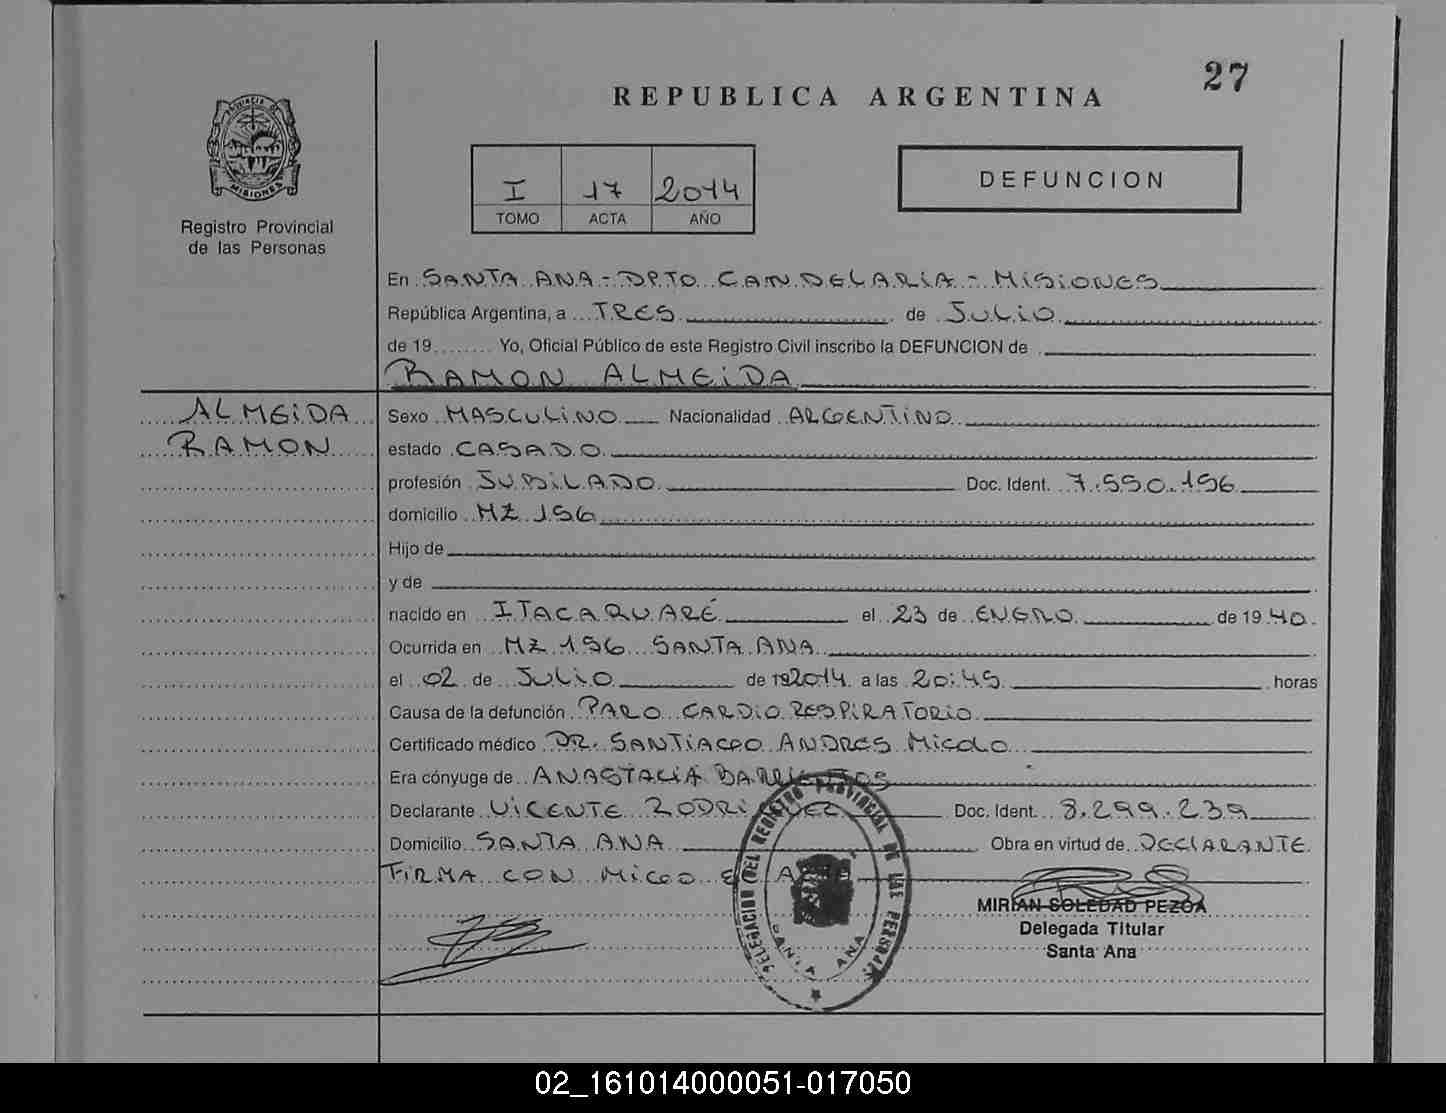 27
REPUBLICA ARGENTINA
PROVINCIA DE
MISIONES
Registro Provincial
de las Personas
I 17 2014
TOMO ACTA AÑO
DEFUNCION
En SANTA ANA - DPTO CANDELARIA - MISIONES
República Argentina, a TRES de JULIO
de 19 Yo, Oficial Público de este Registro Civil inscribo la DEFUNCION de
RAMON ALMEIDA
ALMEIDA
RAMON
Sexo MASCULINO Nacionalidad ARGENTINO
estado CASADO
profesión JUBILADO Doc. Ident. 7.550.156
domicilio MZ 156
Hijo de
y de
nacido en ITACARUARÉ el 23 de ENERO de 1940
Ocurrida en MZ 156 SANTA ANA
el 02 de JULIO de 2014 a las 20:45 horas
Causa de la defunción PARO CARDIO RESPIRATORIO
Certificado médico DR. SANTIAGO ANDRES MICOLO
Era cónyuge de ANASTACIA BARRIENTOS
Declarante VICENTE RODRIGUEZ Doc. Ident. 8.299.239
Domicilio SANTA ANA Obra en virtud de DECLARANTE
FIRMA CON MIGO EL ACTA
MIRIAN SOLEDAD PEZOA
Delegada Titular
Santa Ana
DELEGACION DEL REGISTRO PROVINCIAL DE LAS PERSONAS
SANTA ANA
02_161014000051-017050